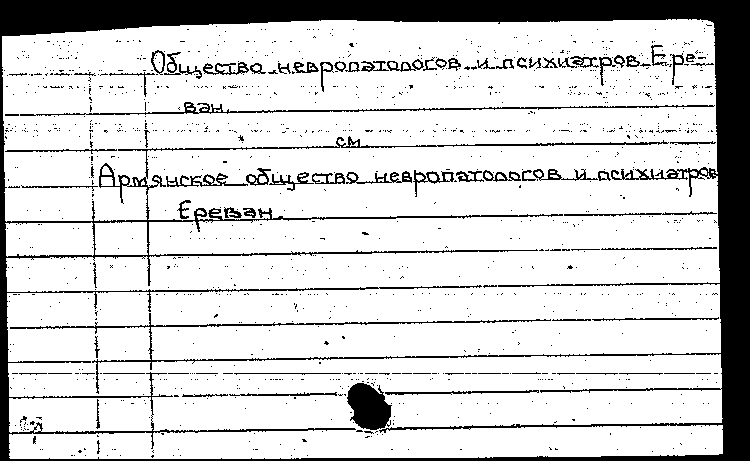 Общество невропатологов и психиатров Ере-
ван.
см.
Армянское общество невропатологов и психиатров
Ереван.